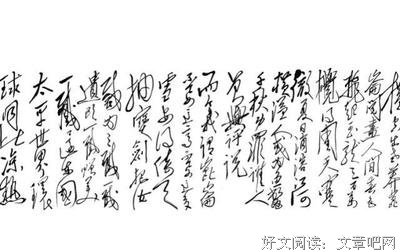 横空出世莽
崑阅尽人间春色
飞起玉龙三百万
搅得周天寒
彻夏日消溶江河
横溢人或为鱼鳖
千秋功罪谁人
曾与评说
而今我谓崑崙
不要这高不要这多
雪安得倚天
抽宝剑把汝
裁为三截一截
遗欧一截赠美
一截还东国
太平世界环
球同此凉热
好文阅读：文章吧网